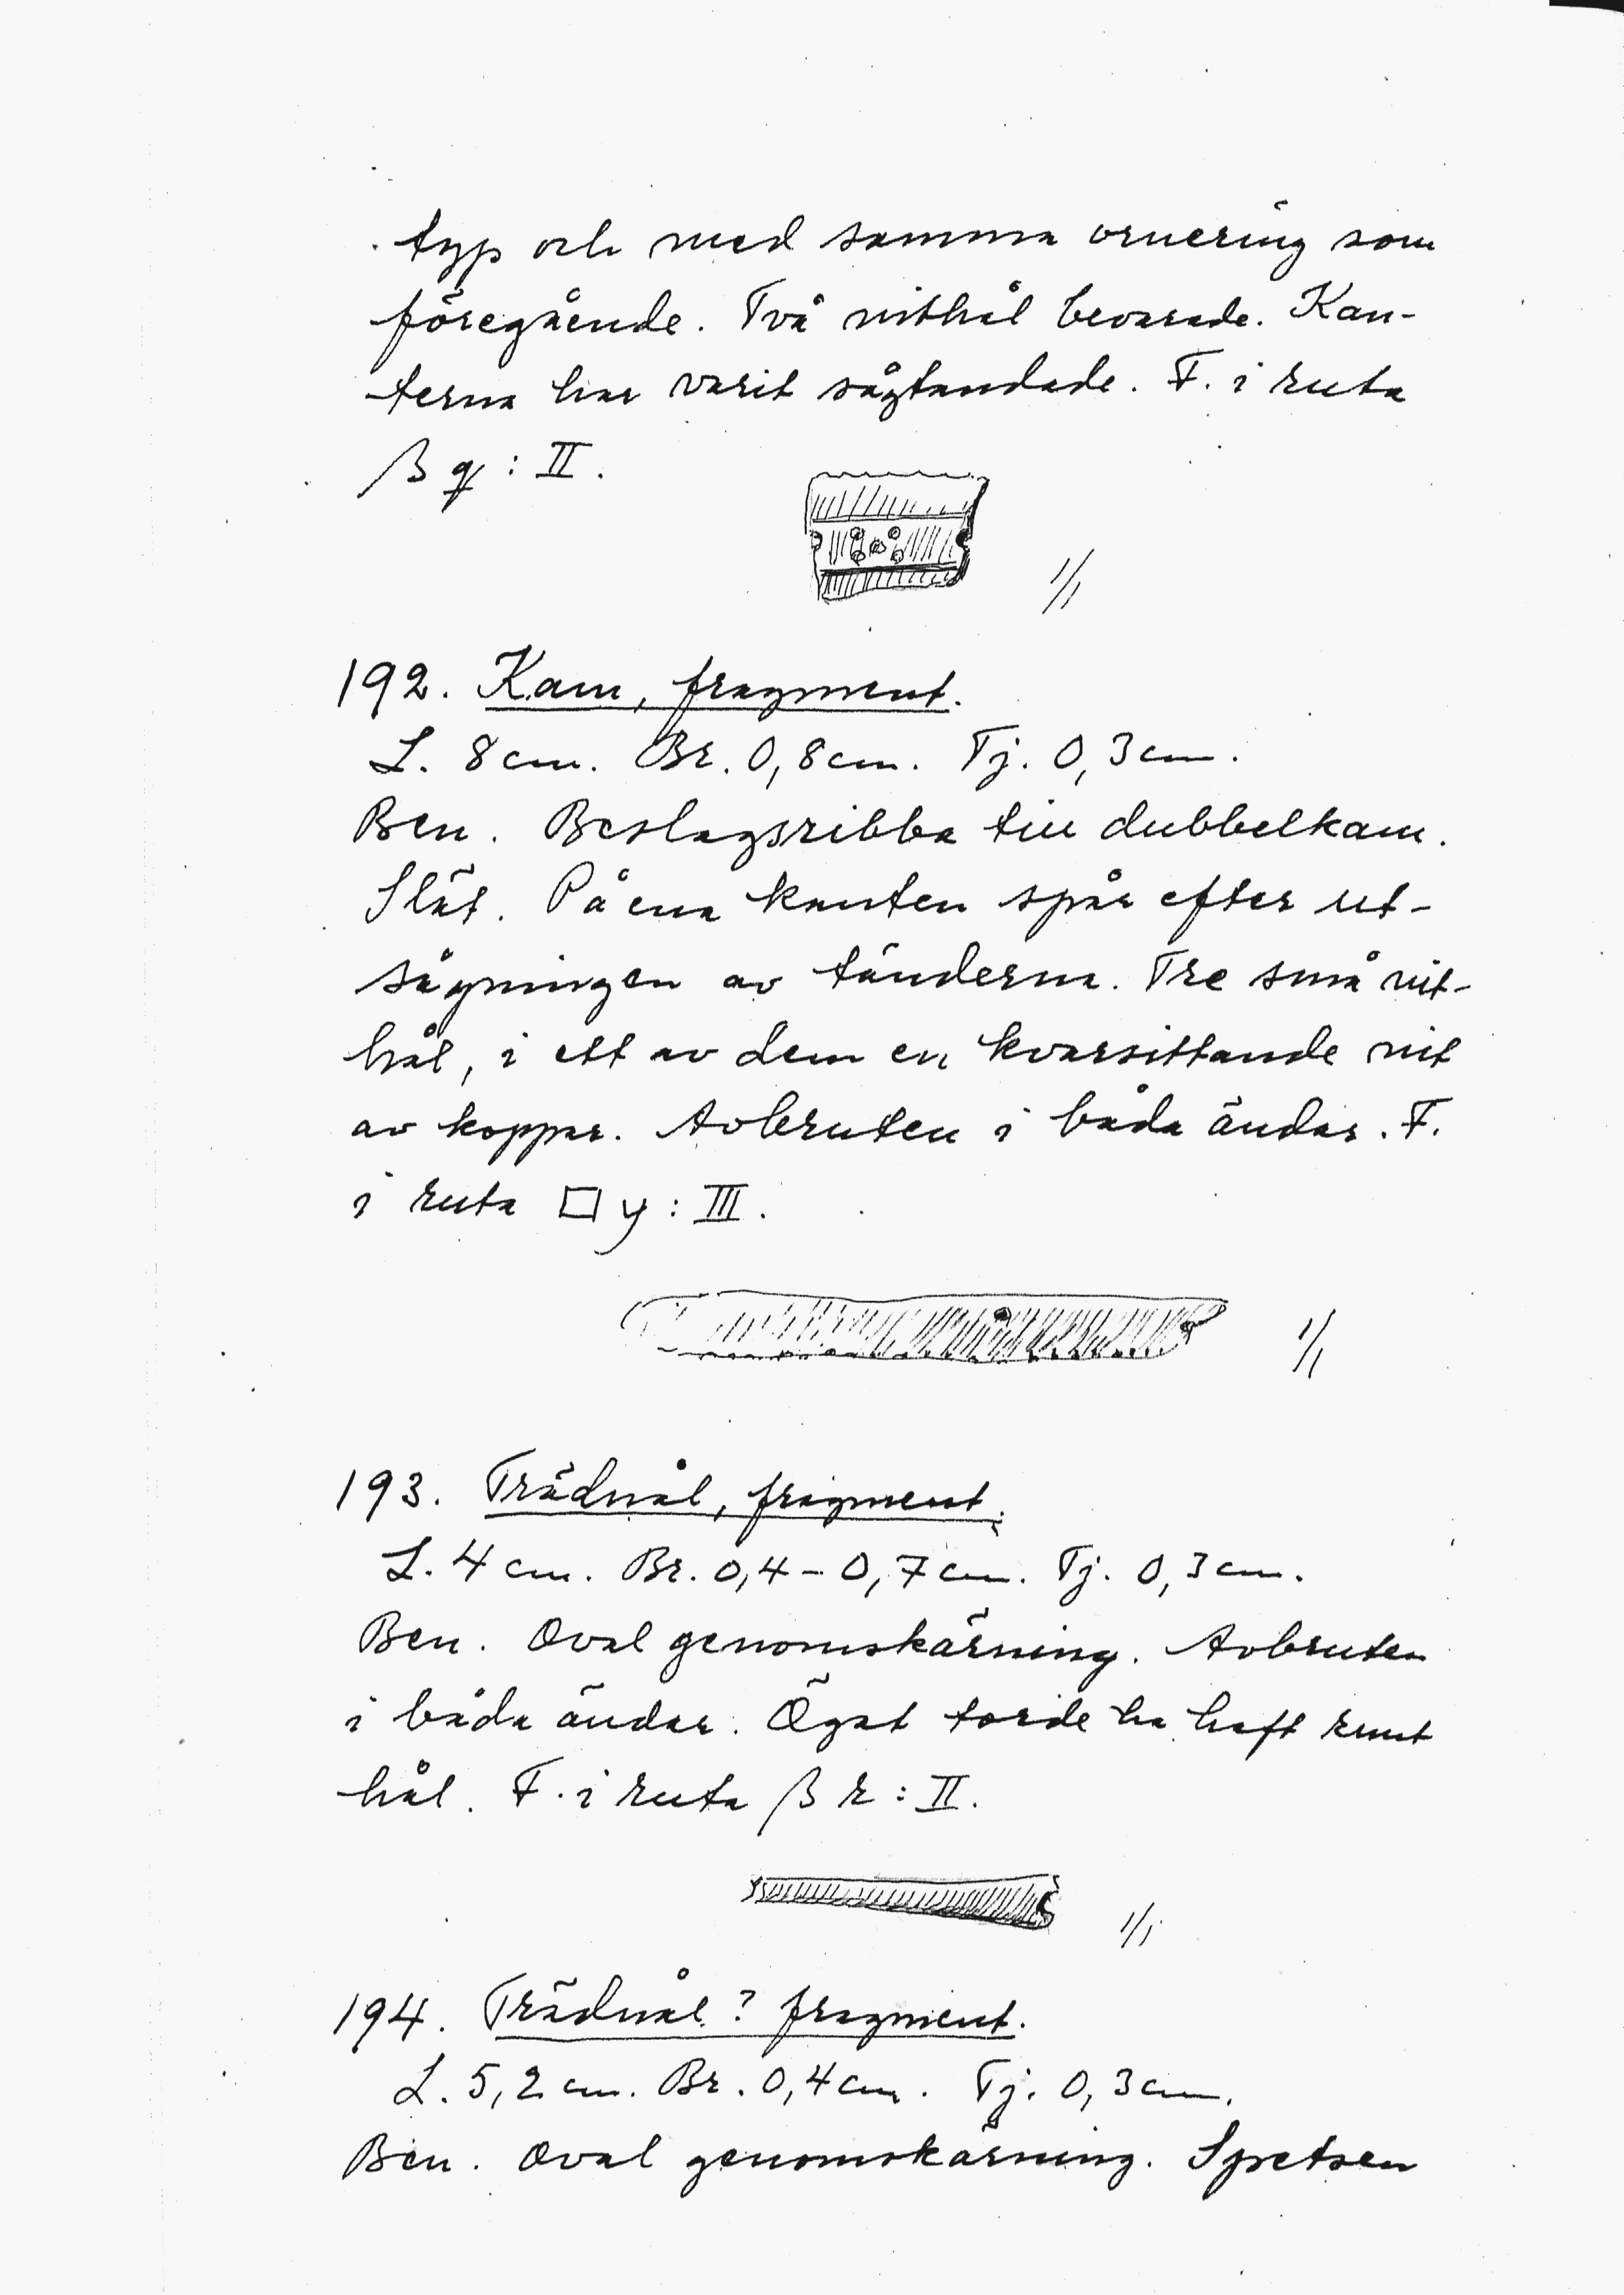 typ och med samma ornering som
föregående. Två nithål bevarade. Kan-
terna har varit sågtandade. F. i ruta
β q : II.
1/1
192. Kam, fragment.
L. 8 cm. Br. 0,8 cm. Tj. 0,3 cm.
Ben. Beslagsribba till dubbelkam.
Slät. På ena kanten spår efter ut-
sågningen av tänderna. Tre små nit-
hål, i ett av dem en kvarsittande nit
av koppar. Avbruten i båda ändar. F.
i ruta □ y : III.
1/1
193. Trädnål, fragment.
L. 4 cm. Br. 0,4 – 0,7 cm. Tj. 0,3 cm.
Ben. Oval genomskärning. Avbruten
i båda ändar. Ögat torde ha haft runt
hål. F. i ruta β r : II.
1/1
194. Trädnål? fragment.
L. 5,2 cm. Br. 0,4 cm. Tj. 0,3 cm.
Ben. Oval genomskärning. Spetsen